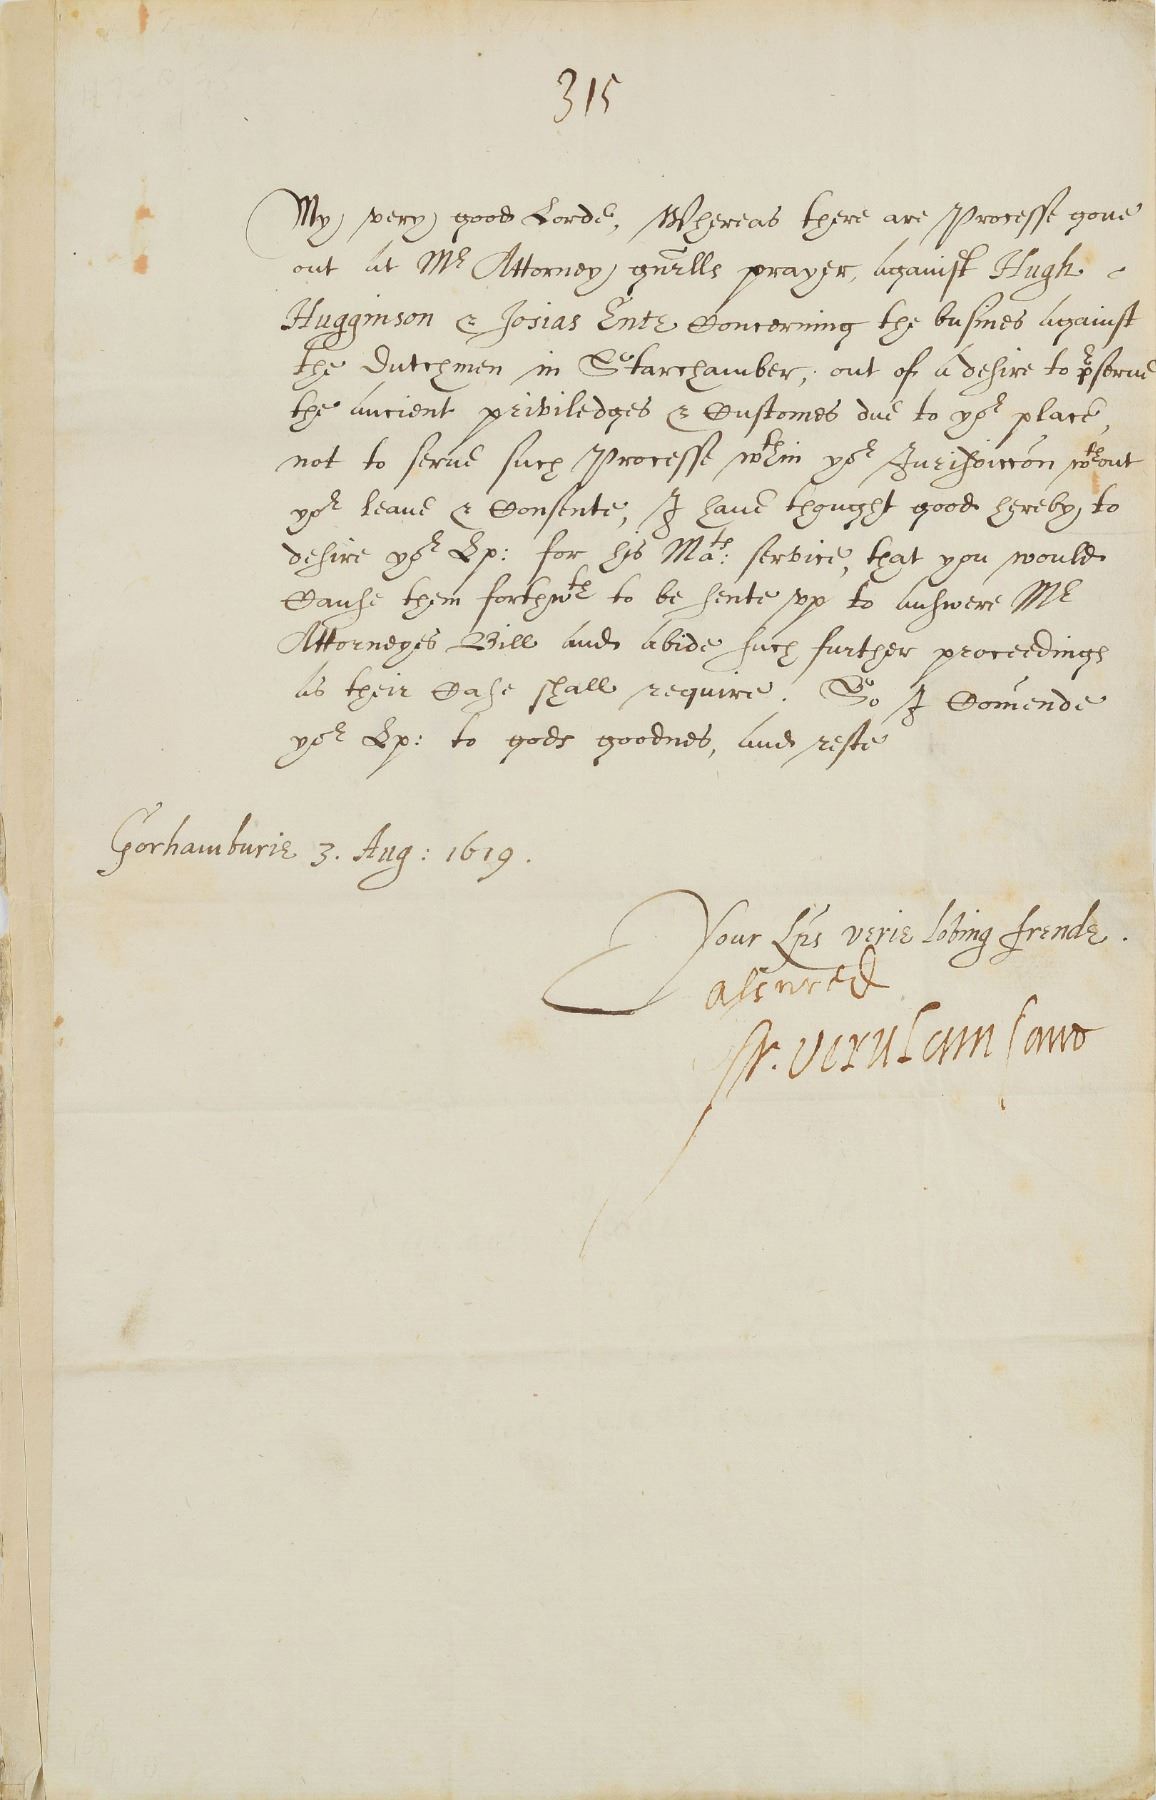 315
My very good Lorde, Whereas there are Processe gone
out at Mr Attorney gn̄ralls prayer, against Hugh
Hugginson & Josias Ente Concerning the busines against
the Dutchmen in Starchamber, out of a desire to pserue
the ancient priviledges & Customes due to yor place,
not to serue such Processe wthin yor Jurisdiccōn wthout
yor leaue & Consente, I haue thought good hereby to
desire yor Lp: for his Mats: service, that you would
Cause them forthwth to be sente vp to answere Mr
Attorneyes Bill and abide such further proceedings
as their Case shall require. So I Com̄ende
yor Lp: to gods goodnes, and reste
Gorhamburie 3. Aug: 1619.
Your Lps verie loving frende.
assured
Fr. Verulam Canc